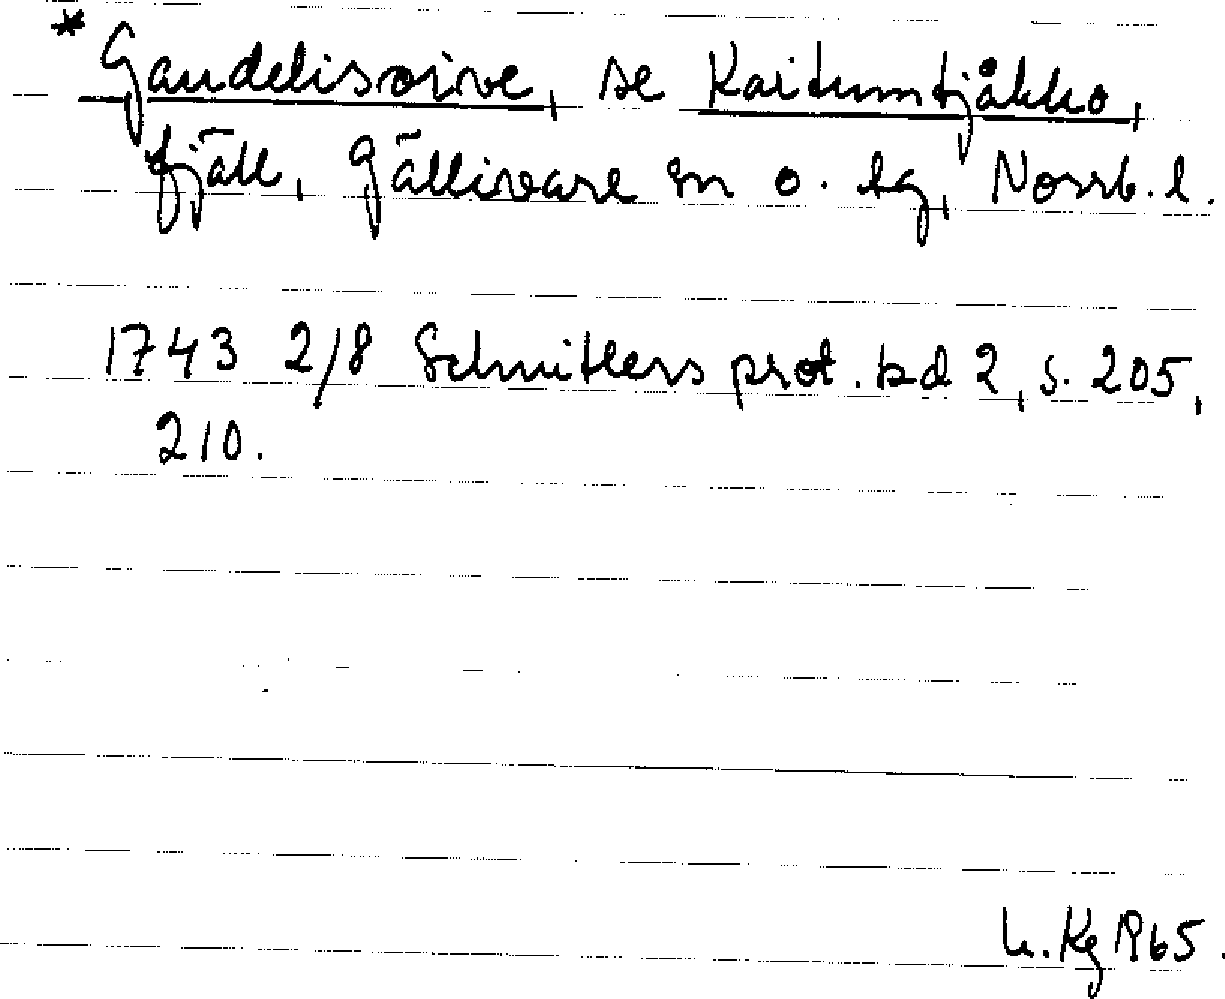 * Gaudelisoive, se Kaitumtjåkko,
fjäll, Gällivare sn o. tg, Norrb. l.
1743 2/8 Schnitlers prot. bd 2, s. 205,
210.
Kg 1965.